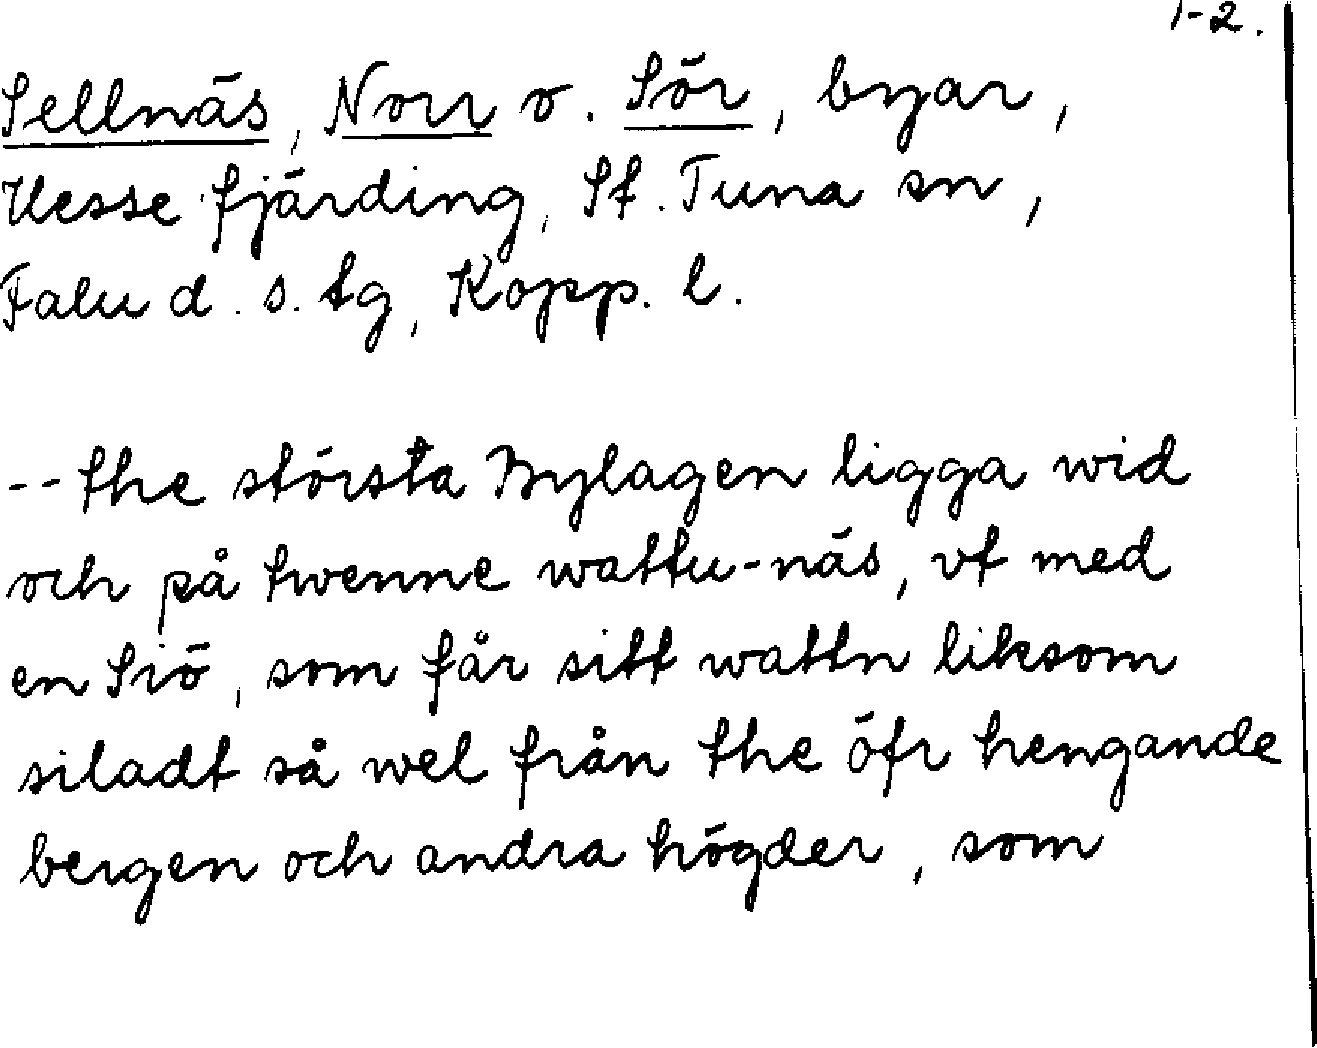 1-2.
Sellnäs, Norr o. Sör, byar,
Uesse fjärding, St. Tuna sn,
Falu d. s. tg, Kopp. l.
-- the största Bylagen ligga wid
och på twenne wattu-näs, vt med
en Siö, som får sitt wattn liksom
siladt så wel från the öfr hengande
bergen och andra högder, som